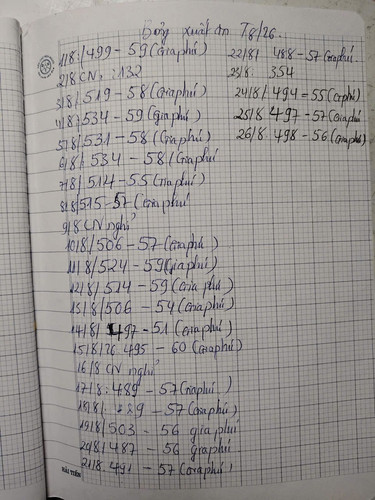 Bảng xuất ăn T8/26.
1/8:/499-59(Giaphú)
2/8 CN, :132
3/8/519-58(Giaphú)
4/8/534-59(Giaphú)
5/8/531-58(Giaphú)
6/8/534-58(Giaphú
7/8/514-55(Giaphú)
8/8/515-57(Giaphú
9/8 CN nghỉ
10/8/506-57(Giaphú)
11/8/524-59(Giaphú)
12/8/514-59(Gia phú)
13/8/506-54(Giaphú)
14/8/497-51(Giaphú)
15/8/26.495-60(Giaphú)
16/8 CN nghỉ
17/8:489-57(Giaphú)
18/8/ -57(Giaphú)
19/8/503-56 gia phú
20/8/487-56 giaphú
21/8.491-57(Giaphú)
22/8/ 488-57(Giaphú.
23/8: 354
24/8/494=55(Giaphú)
25/8 497-57(Giaphú
26/8.498-56(Giaphú)
HẢI TIẾN